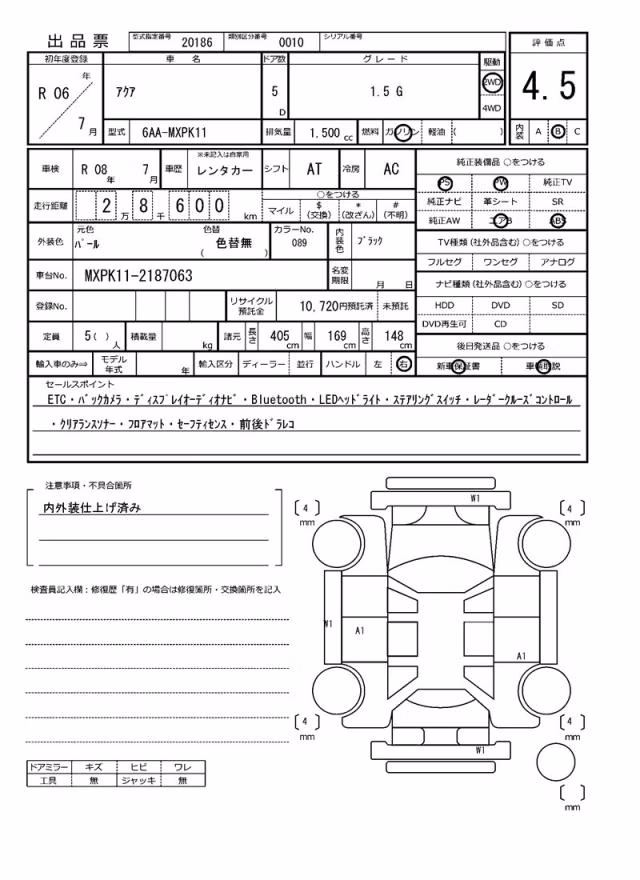 出品票 型式指定番号 20186 類別区分番号 0010 シリアル番号
初年度登録 車名 ドア数 グレード 駆動 評価点
R 06 年 7 月 アクア 5 D 1.5 G 2WD 4WD 4.5
型式 6AA-MXPK11 排気量 1.500 cc 燃料 ガソリン 軽油 ( ) 内装 A B C
車検 R 08 年 7 月 車歴 ※未記入は自家用 レンタカー シフト AT 冷房 AC
走行距離 2 万 8 千 6 0 0 km ○をつける
マイル $(交換) *(改ざん) #(不明)
外装色 元色 パール 色替 ( 色替無 ) カラーNo. 089 内装色 ブラック
車台No. MXPK11-2187063 名変期限 月 日
登録No. リサイクル預託金 10,720円預託済 未預託
定員 5 ( ) 人 積載量 kg 諸元 長さ 405 cm 幅 169 cm 高さ 148 cm
輸入車のみ⇒ モデル年式 年 輸入区分 ディーラー 並行 ハンドル 左 右
純正装備品 ○をつける
PS PW 純正TV
純正ナビ 革シート SR
純正AW エアB ABS
TV種類(社外品含む) ○をつける
フルセグ ワンセグ アナログ
ナビ種類(社外品含む) ○をつける
HDD DVD SD
DVD再生可 CD
後日発送品 ○をつける
新車保証書 車輌取説
セールスポイント
ETC・バックカメラ・ディスプレイオーディオナビ・Bluetooth・LEDヘッドライト・ステアリングスイッチ・レーダークルーズコントロール
・クリアランスソナー・フロアマット・セーフティセンス・前後ドラレコ
注意事項・不具合箇所
内外装仕上げ済み
検査員記入欄：修復歴「有」の場合は修復箇所・交換箇所を記入
W1
[ 4 ] mm [ 4 ] mm
W1 A1 A1
[ 4 ] mm [ 4 ] mm
W1
[ ] mm
ドアミラー キズ ヒビ ワレ
工具 無 ジャッキ 無